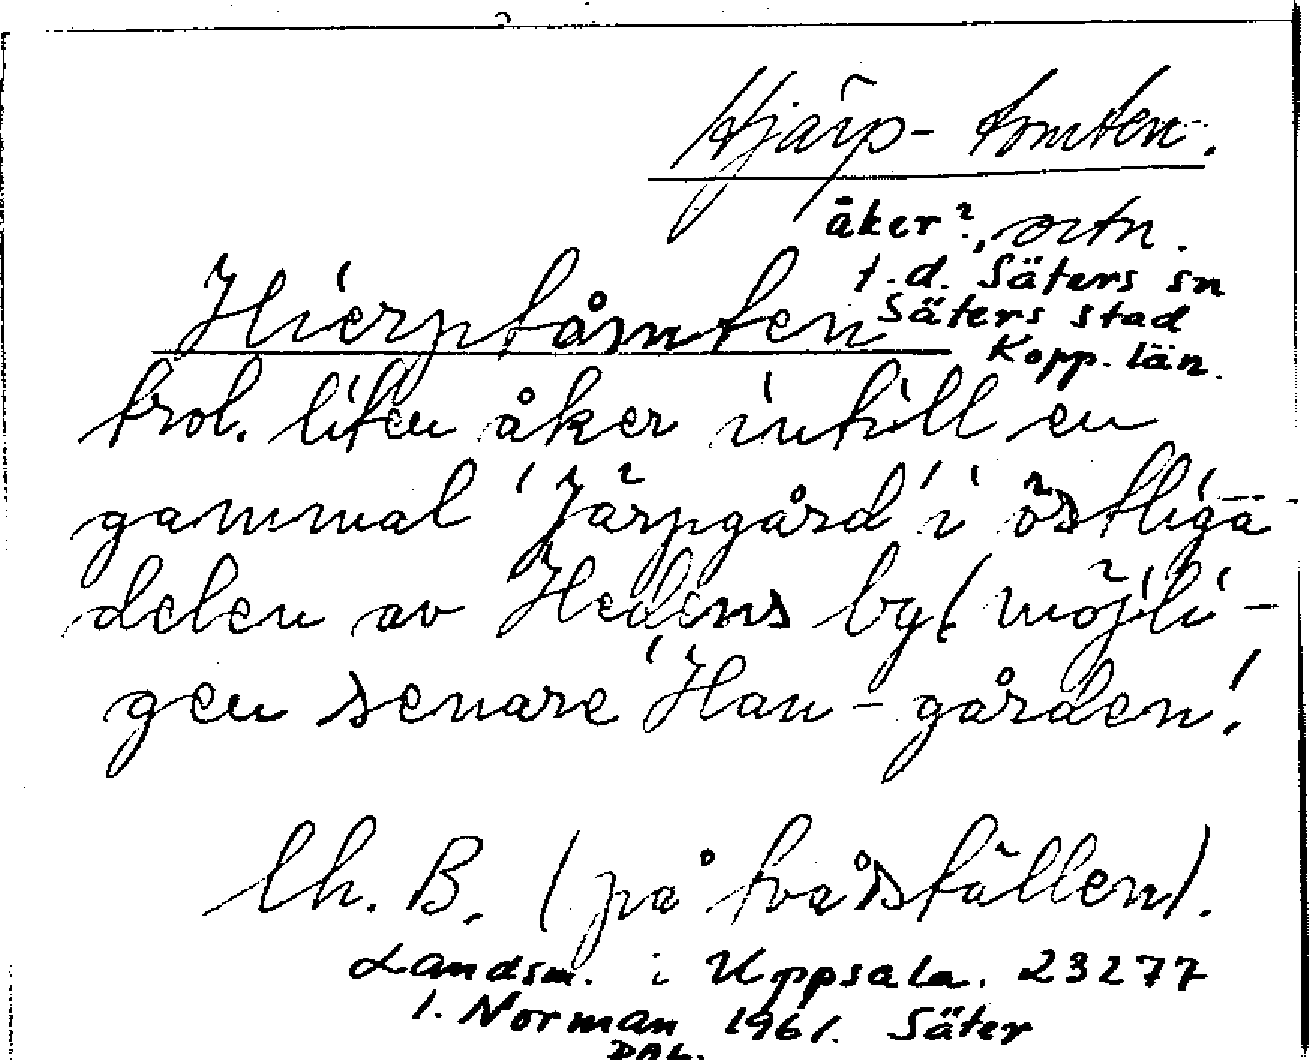 Hjärp-tomten.
åker?, ortn.
f.d. Säters sn
Säters stad
Kopp. län.
Hierptåmten
trol. liten åker intill en
gammal 'Järpgård' i östliga
delen av Hedens by (möjli-
gen senare 'Han-gården!
Ch. B. (på två ställen).
Landsm. i Uppsala. 23277
I. Norman 1961. Säter
DAL.